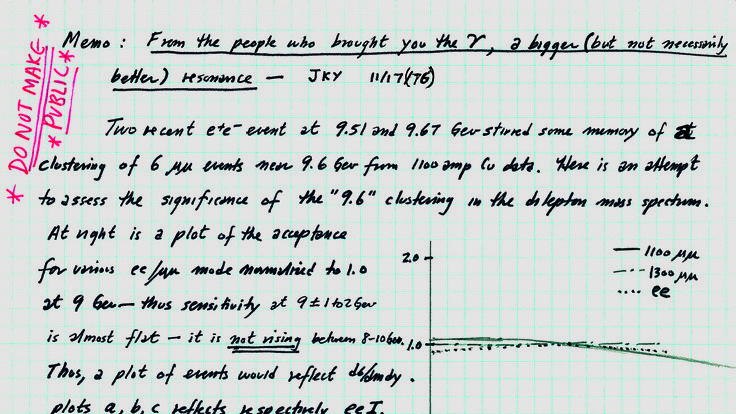 * DO NOT MAKE *
* PUBLIC *
Memo: From the people who brought you the ϒ, a bigger (but not necessarily
better) resonance — JKY 11/17/(76)
Two recent e+e- event at 9.51 and 9.67 GeV stirred some memory of a
clustering of 6 μμ events near 9.6 GeV from 1100 amp Cu data. Here is an attempt
to assess the significance of the "9.6" clustering in the dilepton mass spectrum.
At right is a plot of the acceptance
for various ee/μμ mode normalized to 1.0
at 9 GeV — thus sensitivity at 9 ± 1 to 2 GeV
is almost flat — it is not rising between 8-10 GeV.
Thus, a plot of events would reflect dσ/dmdy.
plots a, b, c reflects respectively eeI.
2.0
1.0
1100 μμ
1300 μμ
ee